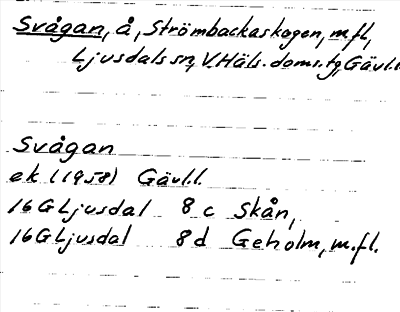 Svågan, å, Strömbackaskogen, m.fl.,
Ljusdals sn, V. Häls. doms.tg, Gävl.l.
Svågan
ek (1958) Gävl.l.
16G Ljusdal 8 c Skån,
16G Ljusdal 8d Geholm, m.fl.